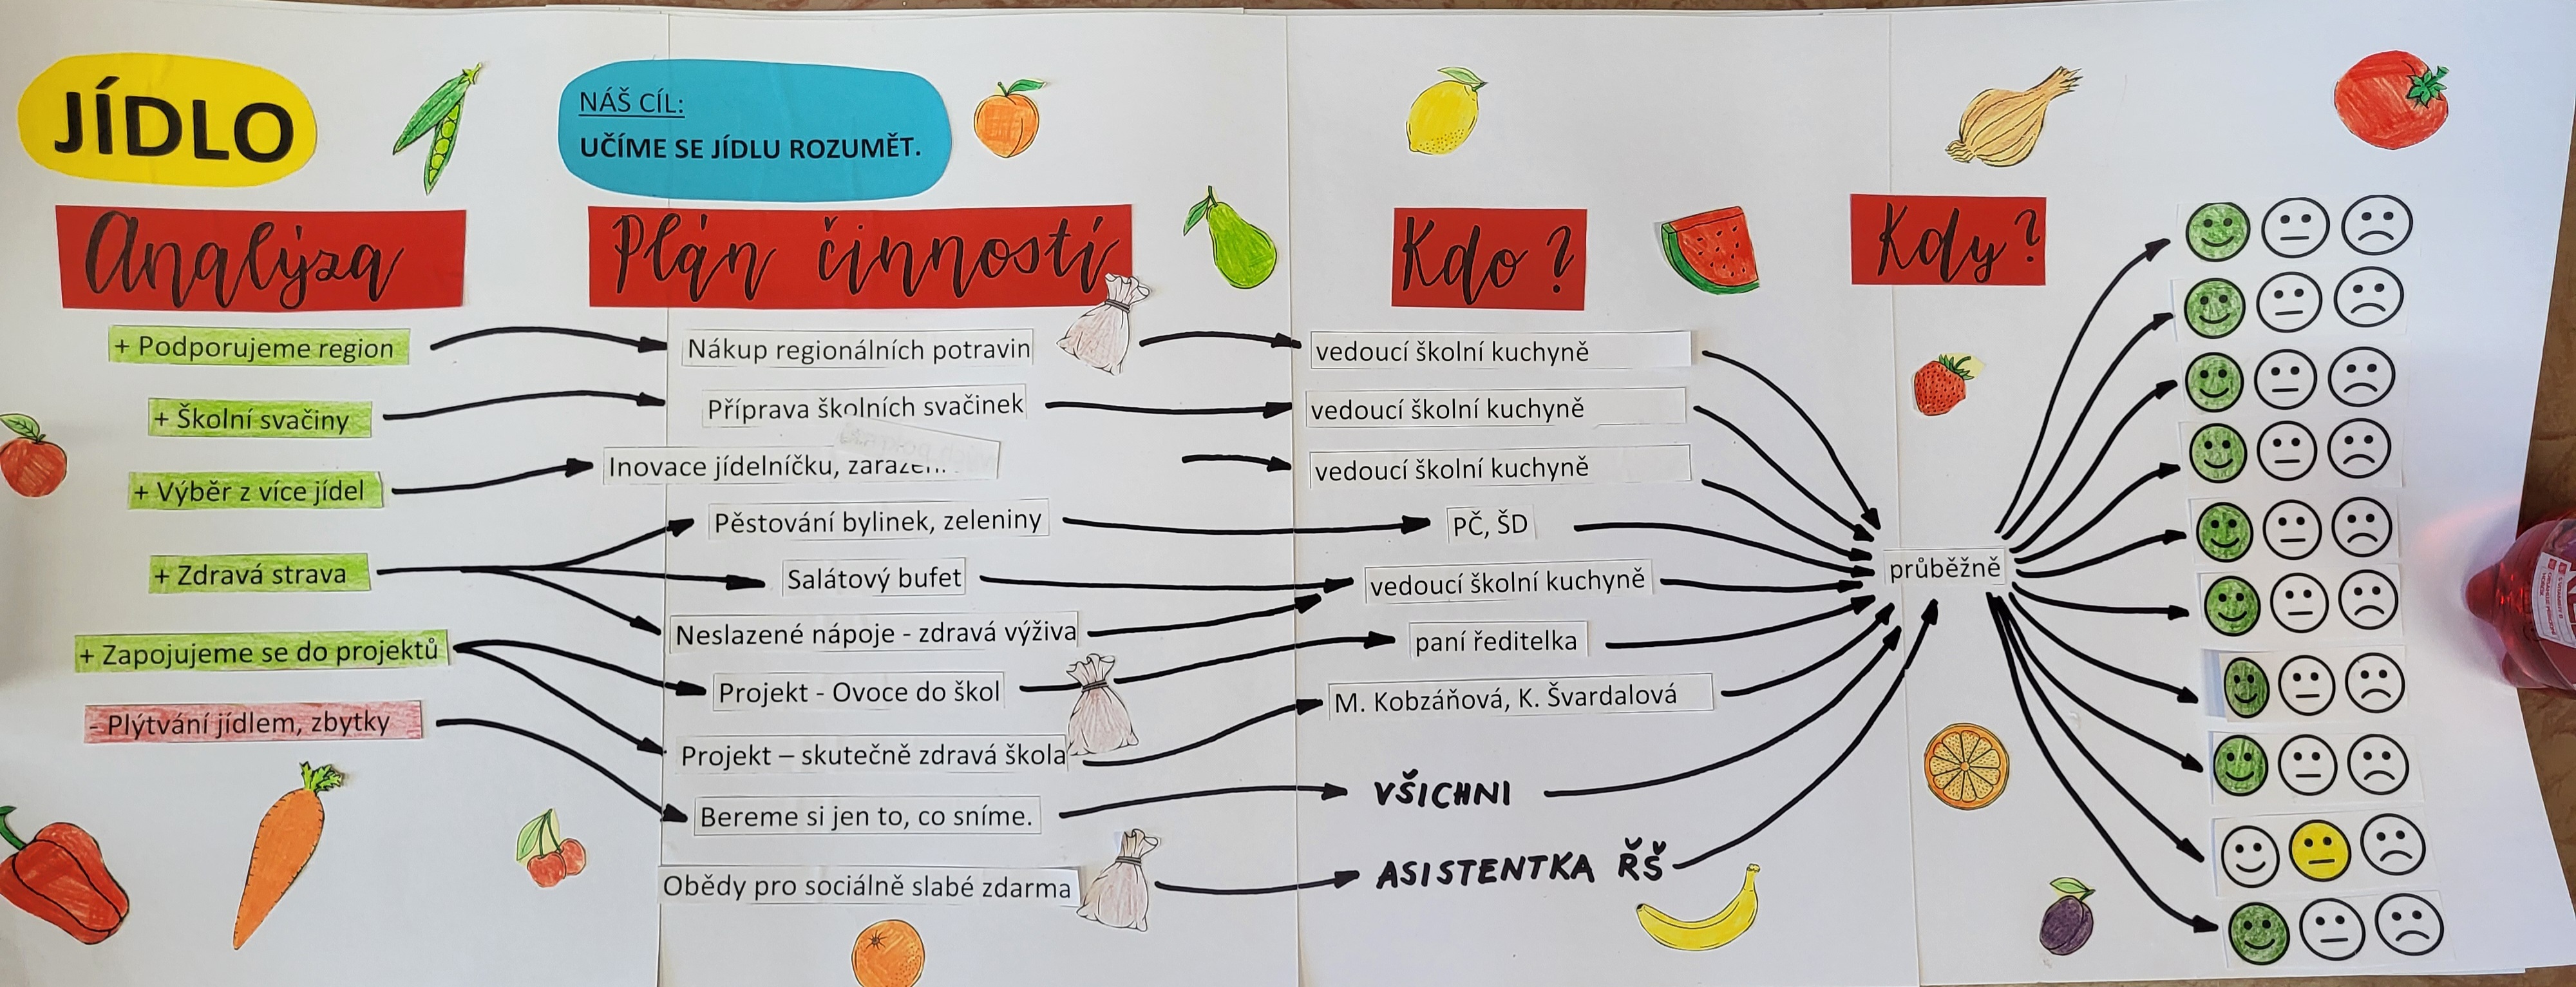 JÍDLO
NÁŠ CÍL:
UČÍME SE JÍDLU ROZUMĚT.
Analýza
Plán činností
Kdo?
Kdy?
+ Podporujeme region
Nákup regionálních potravin
vedoucí školní kuchyně
+ Školní svačiny
Příprava školních svačinek
vedoucí školní kuchyně
+ Výběr z více jídel
Inovace jídelníčku,
vedoucí školní kuchyně
+ Zdravá strava
Pěstování bylinek, zeleniny
PČ, ŠD
Salátový bufet
vedoucí školní kuchyně
Neslazené nápoje - zdravá výživa
+ Zapojujeme se do projektů
Projekt - Ovoce do škol
paní ředitelka
Projekt – skutečně zdravá škola
M. Kobzáňová, K. Švardalová
- Plýtvání jídlem, zbytky
Bereme si jen to, co sníme.
VŠICHNI
Obědy pro sociálně slabé zdarma
ASISTENTKA ŘŠ
průběžně